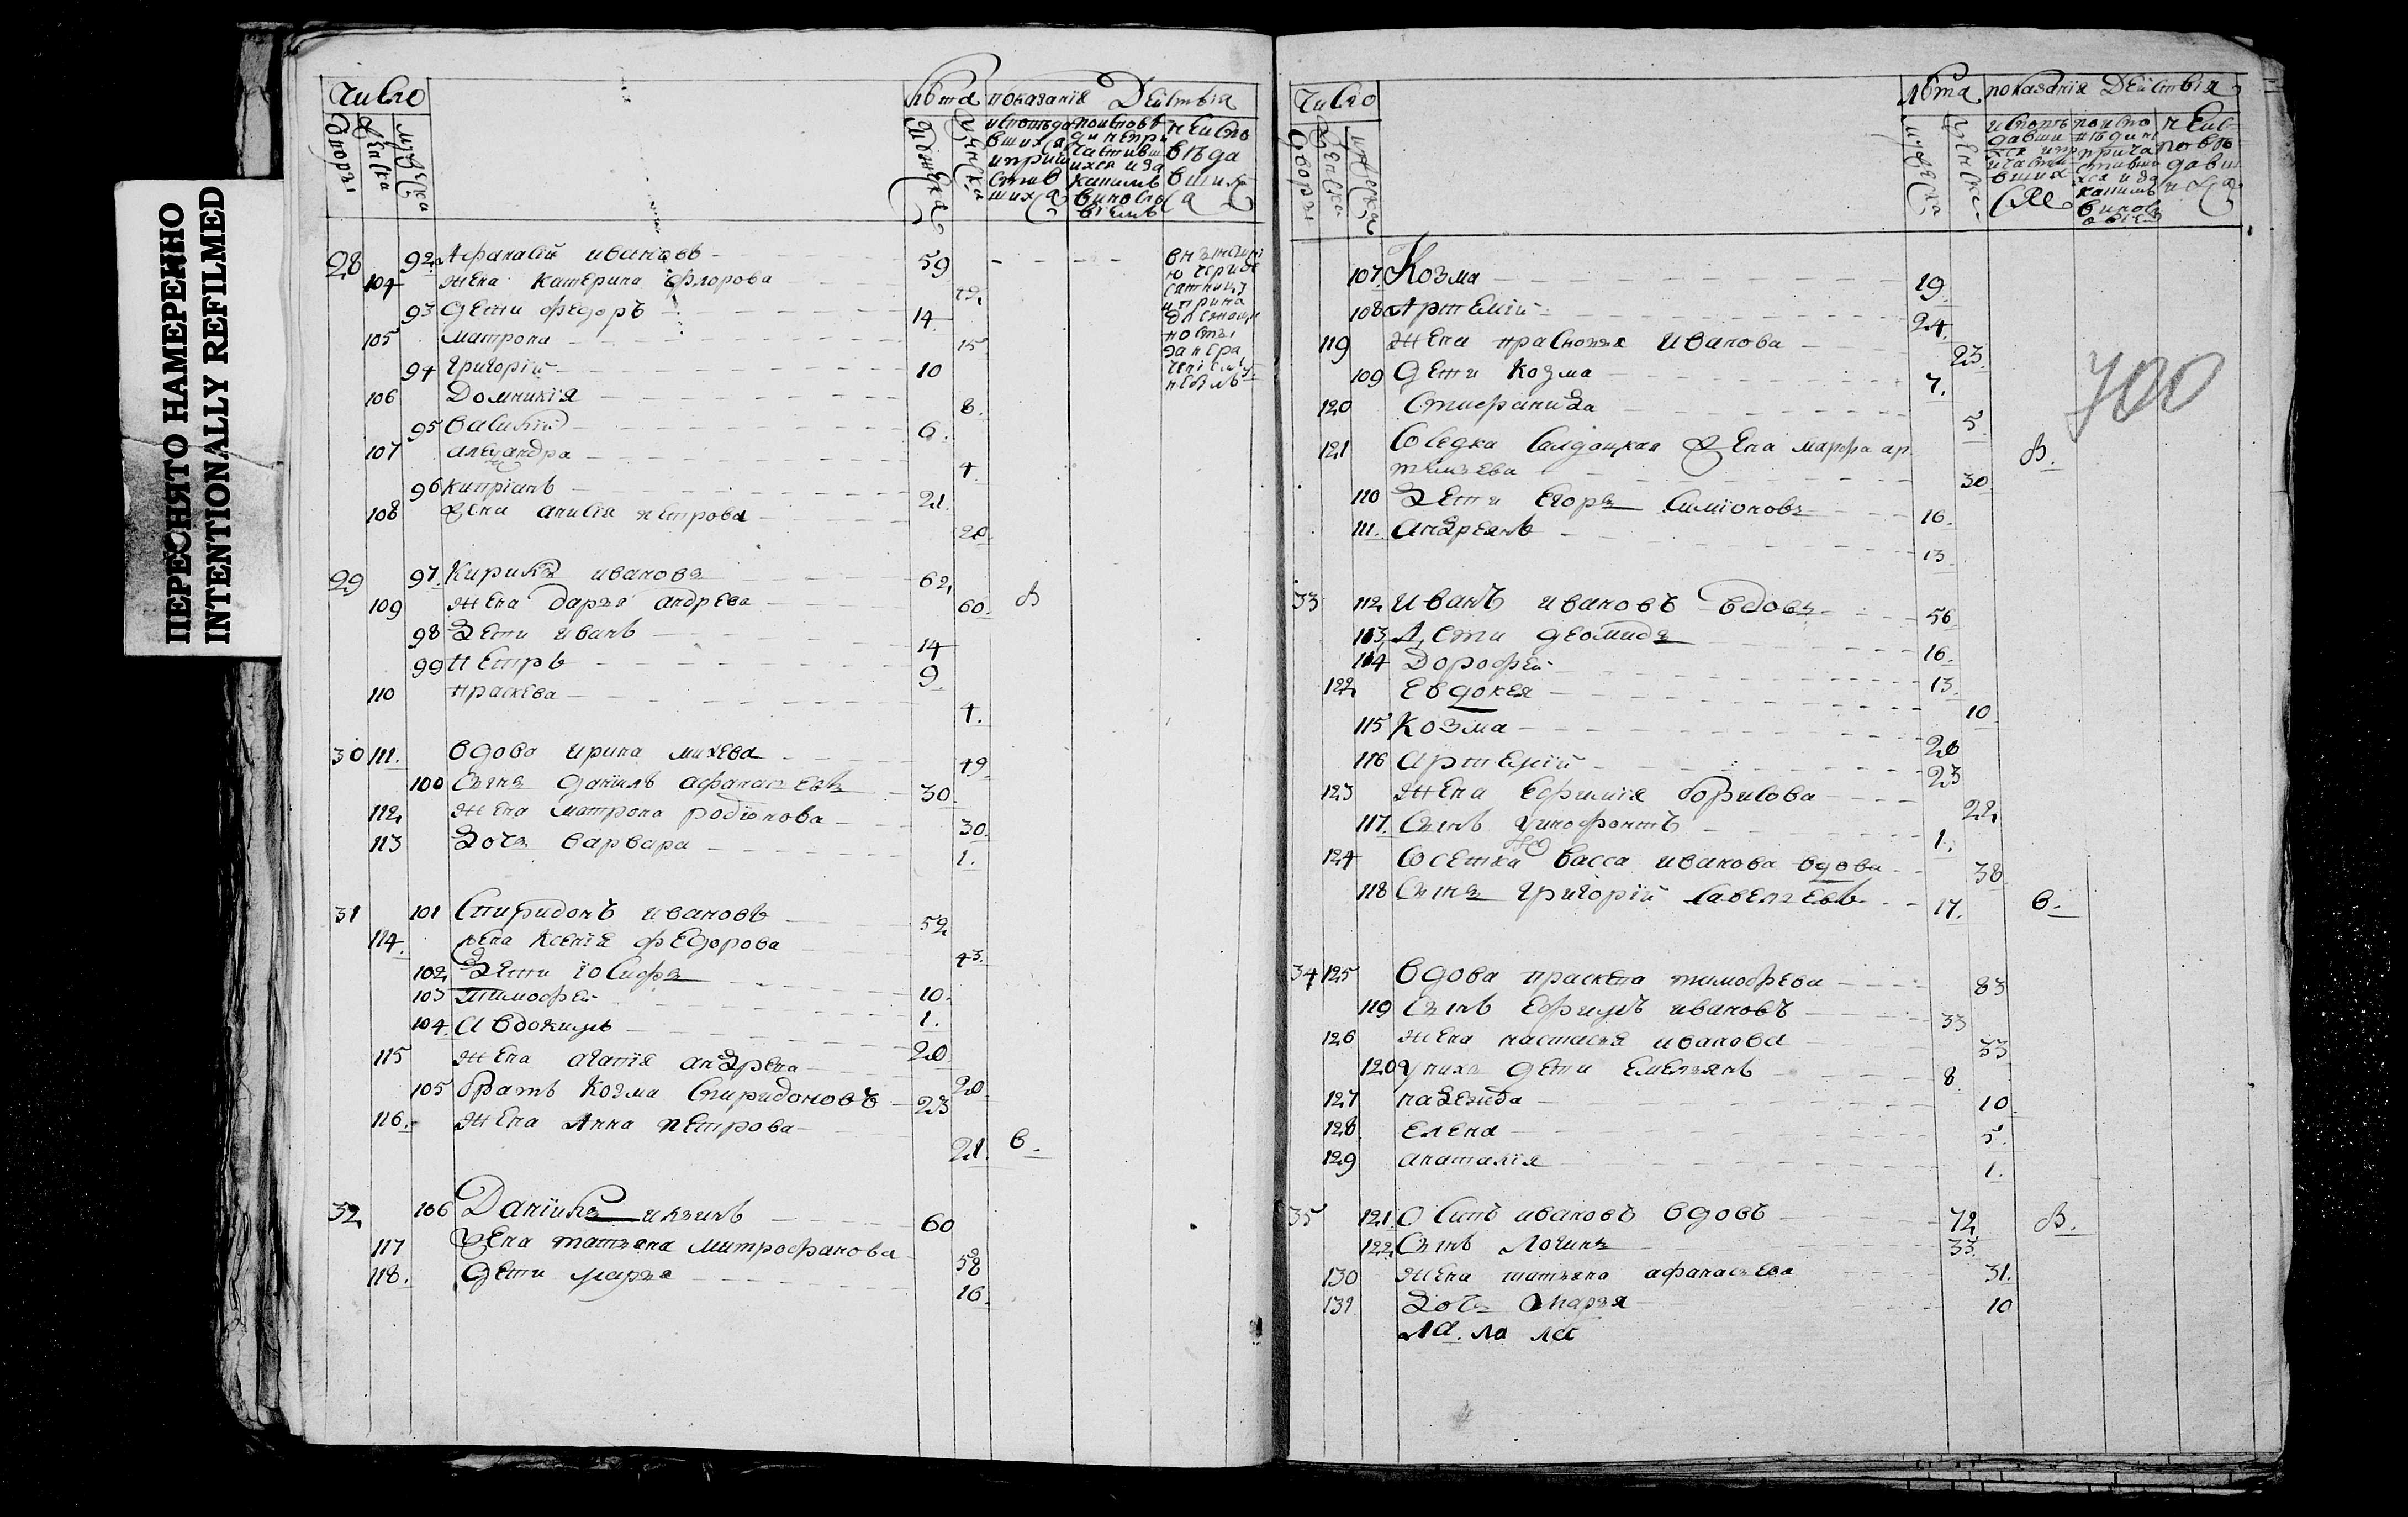 ПЕРЕСНЯТО НАМЕРЕННО
INTENTIONALLY REFILMED
Число
лѣта показанїя Действїя
дворы
женска
мужеска
28 92 Афанасїй ивановъ 59
104 жена катерина флорова 49
93 дети федоръ 14
105 матрона 15
94 григорїй 10
106 Домникїя 8.
95 василїй 6.
107 александра 4
96 кипрїанъ 21.
108 жена анисїя петрова 20.
29 97. Кирилъ ивановъ 62,
109 жена дарья андрева 60. В
98 Дети иванъ 14
99 петръ 9
110 праскева 4.
30 111. вдова ирина михева 49
100 сынъ данїилъ афанасьевъ 30.
112, жена матрона родїонова 30.
113 Дочь варвара 1.
31 101 Спиридонъ ивановъ 52
114. жена ксенїя федорова 43.
102, Дети їосифъ 10.
103 тимофей 1.
104. Авдокимъ 20
115 жена агапїя андрева 20.
105 братъ козма спиридоновъ 23
116. жена Анна петрова 21. в.
32, 106 Данїилъ 60
117 жена татьяна митрофанова 58
118. дети марья 16.
Число
лѣта показанїя Действїя
дворы
женска
мужеска
107. Козма 19
108 Артемїй 24.
119 жена прасковья иванова 23.
109 дети козма 7.
120 стиефанида 5.
700
121 соседка салдацкая жена марфа ар
темьева 30 В.
110 Дети егоръ симїоновъ 16.
111. Андреянъ 13
33 112, иванъ ивановъ вдовъ 56
113, Дети деомидъ 16.
114 Дорофей 13.
122, евдокея 10
115 Козма 20
116 артемїй 23
123 жена ефимїя борисова 22,
117. сынъ ѯинофонтъ 1.
124 сосетка васса иванова вдова 38
118 сынъ григорїй савельевъ 17. в.
34 125 вдова праскева тимофева 83
119 сынъ ефимъ ивановъ 33
126 жена настасья иванова 33
120 у нихъ дети емельянъ 8
127 надежда 10
128 елена 5.
129 анаталїя 1.
35 121. Осипъ ивановъ вдовъ 72, В.
122, сынъ логинъ 33.
130 жена татьяна афанасьева 31.
131 Дочь марья 10